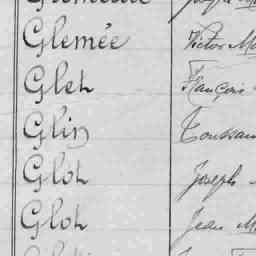 Glemée Victor
Glet François
Glin Toussain
Glot Joseph
Glot Jean M